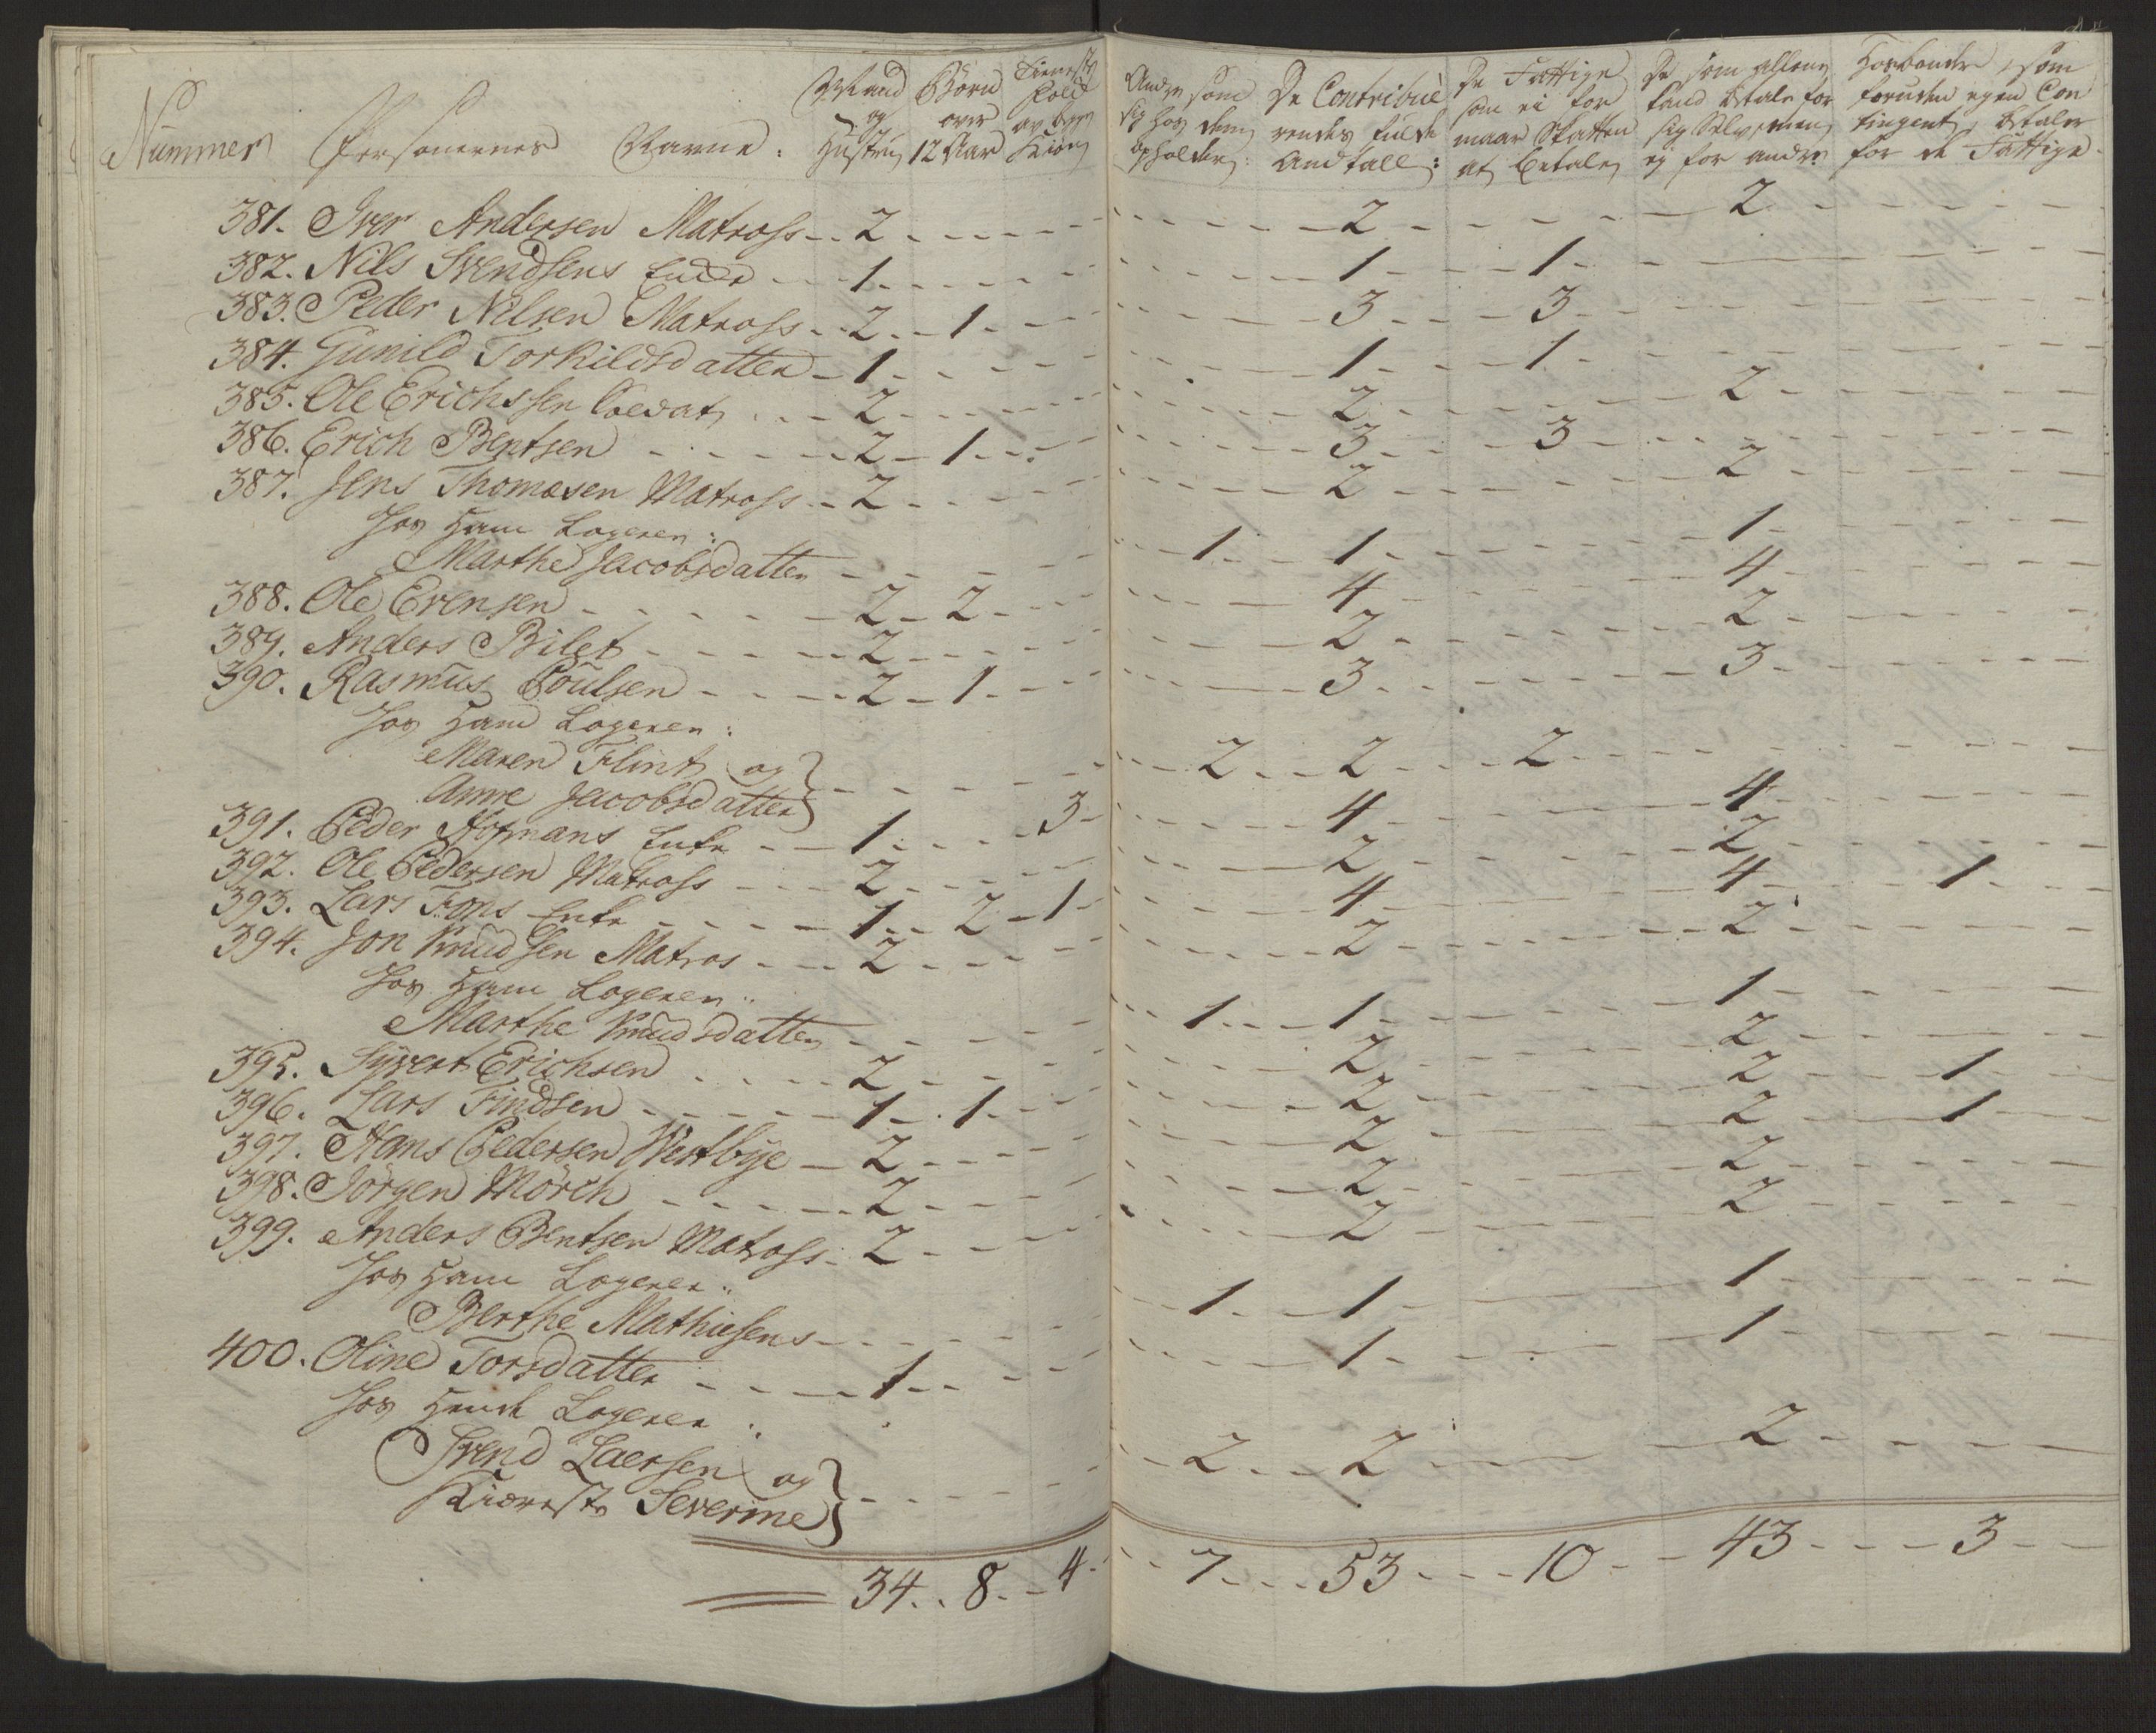 Nummer Personernes Navne: Mand og Hustru Børn over 12 Aar Tieneste Folk av begge Kiøn Andre som sig hos dem opholder: De Contribuerendes fulde Andtall: De Fattige som ei formaar Skatten at betale De som allene kand betale for sig Selv, men ej for andre Hosbonder, som foruden egen Contingent, betaler for de Fattige
381. Iver Andersen Matross 2 2 2
382. Nils Svendsens Encke 1 1 1
383. Peder Nilsen Matross 2 1 3 3
384. Gunild Torkildsdatter 1 1 1
385. Ole Erichssen Soldat 2 2 2
386. Erich Bentsen 2 1 3 3
387. Jens Thomæsen Matross 2 2 2
Hos Ham Logerer:
Marthe Jacobsdatter 1 1 1
388. Ole Evensen 2 2 4 4
389. Anders Bilet 2 2 2
390. Rasmus Poulsen 2 1 3 3
Hos Ham Logerer:
Maren Flint og
Anne Jacobsdatter 2 2 2
391. Peder Hofmans Enke 1 3 4 4
392. Ole Pedersen Matross 2 2 2
393. Lars Fons Enke 1 2 1 4 4 1
394. Jon Knudsen Matros 2 2 2
Hos Ham Logerer:
Marthe Knudsdatter 1 1 1
395. Syvert Erichsen 2 2 2
396. Lars Findsen 1 1 2 2 1
397. Hans Pedersen Westbye 2 2 2 1
398. Jörgen Mörch 2 2 2
399. Anders Bentsen Matross 2 2 2
Hos Ham Logerer:
Berthe Mathiesens 1 1 1
400. Oline Torsdatter 1 1 1
Hos Hende Logerer:
Svend Laersen og
Kiæreste Severine 2 2 2
34 8 4 7 53 10 43 3